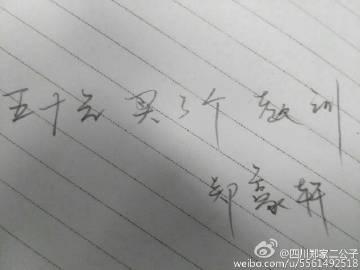 五十元买了个教训
郑家轩
@四川郑家二公子
weibo.com/u/5561492518